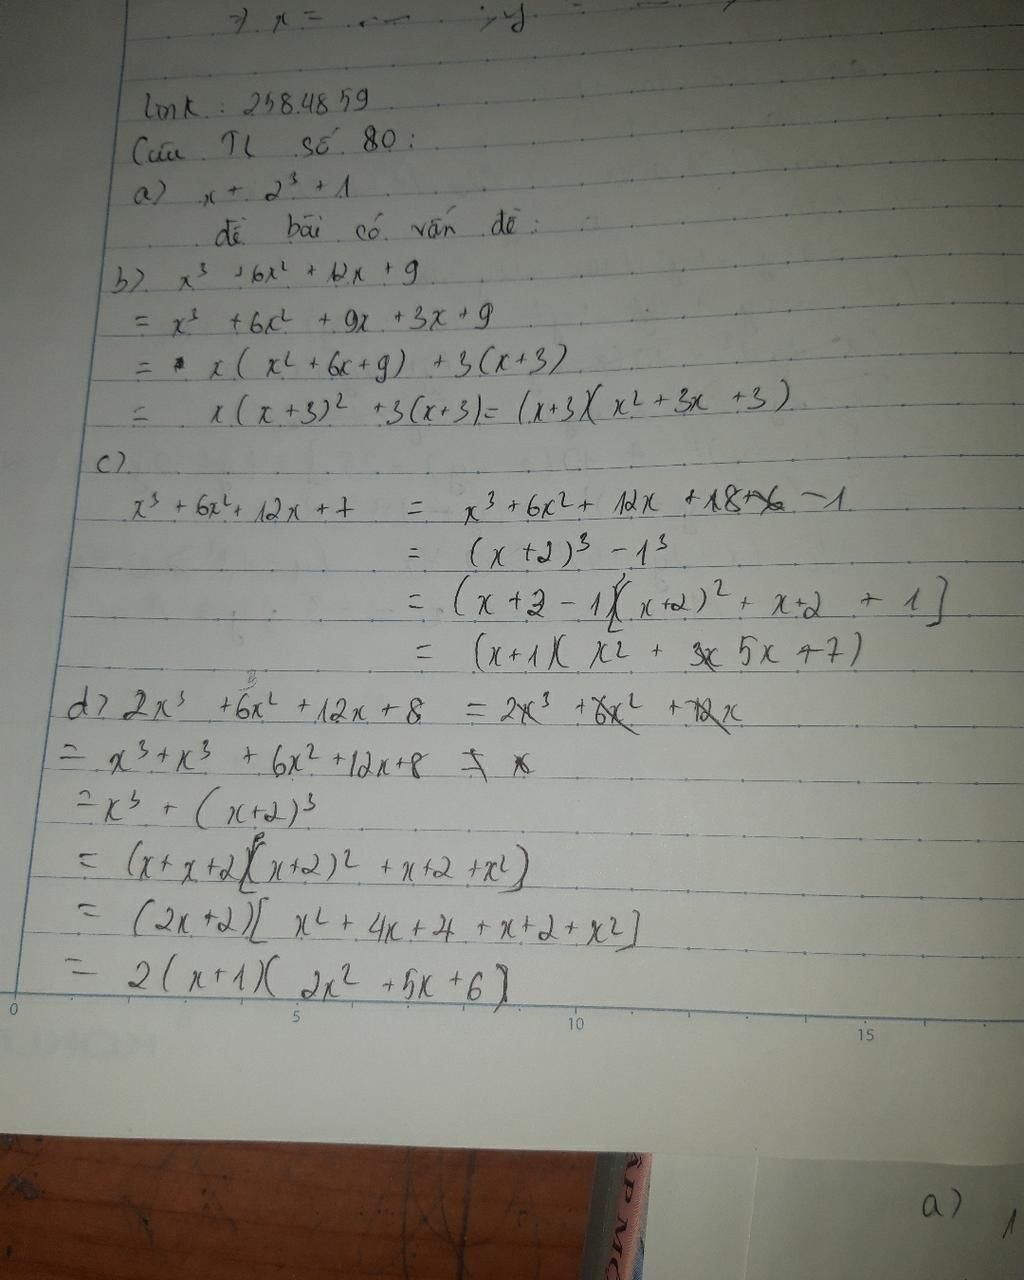 => x = ... ; y =
link : 258.4859
Câu TL số 80 :
a) x + 2³ + 1
đề bài có vấn đề :
b) x³ + 6x² + 12x + 9
= x³ + 6x² + 9x + 3x + 9
= x ( x² + 6x + 9) + 3 (x+3)
= x (x + 3)² + 3(x+3) = (x+3)( x² + 3x + 3)
c)
x³ + 6x² + 12x + 7 = x³ + 6x² + 12x + 8 - 1
= (x + 2)³ - 1³
= (x + 2 - 1)[(x+2)² + x+2 + 1]
= (x+1)( x² + 5x + 7)
d) 2x³ + 6x² + 12x + 8 = 2x³ + 6x² + 12x
= x³ + x³ + 6x² + 12x + 8
= x³ + (x+2)³
= (x + x + 2)[(x+2)² + x+2 + x²]
= (2x + 2)[ x² + 4x + 4 + x + 2 + x²]
= 2 (x + 1)( 2x² + 5x + 6)
0 5 10 15
ẬP MÔ
a) 1